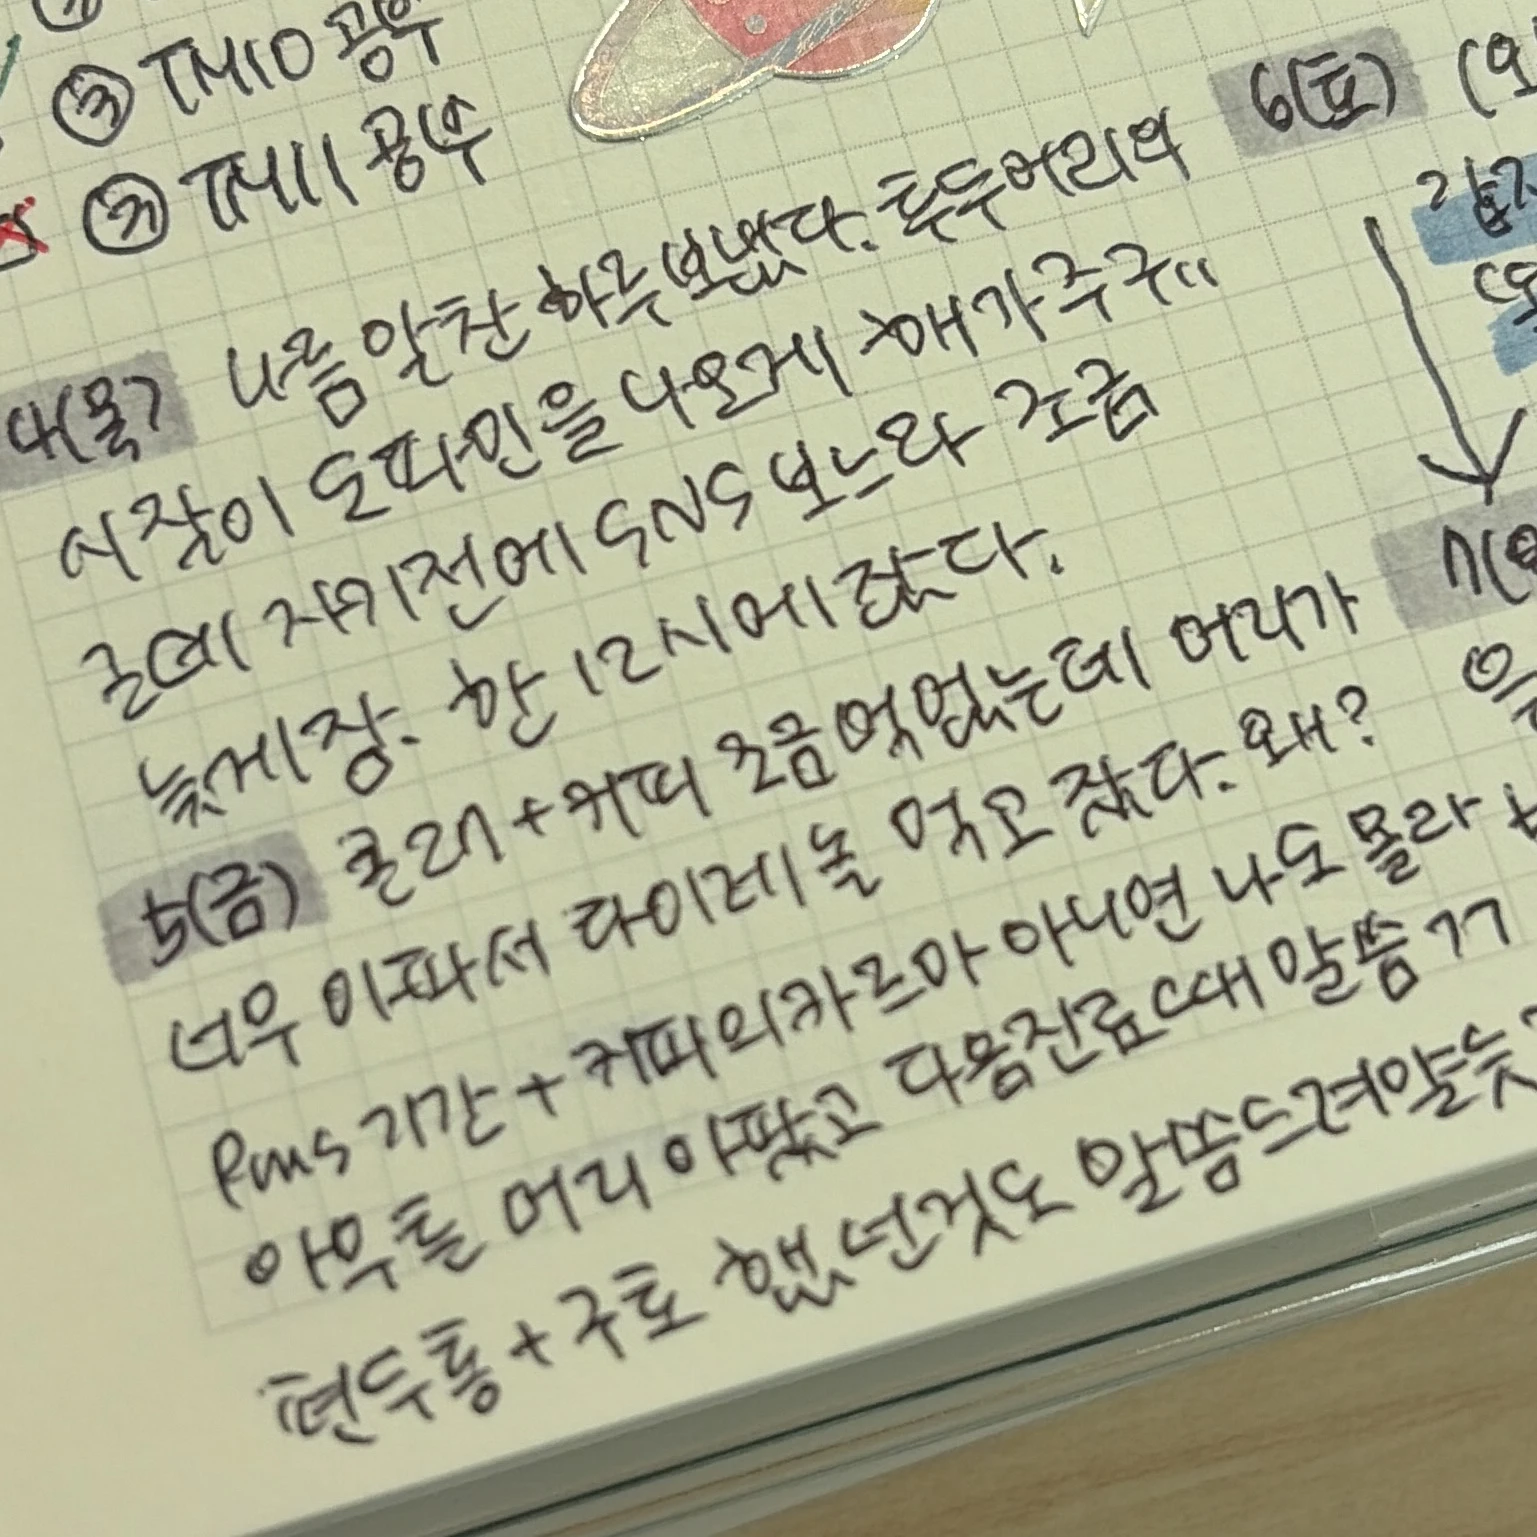 ③ TM10 공부
④ TM11 공부
4(목) 나름 알찬 하루 보냈다. 흑두어리의
시작이 도파민을 나오게 해가주구"
근데 자기전에 SNS 보느라 조금
늦게 잠. 한 12시에 잤다.
5(금) 콜라+커피 조금 먹었는데 머리가
너무 아파서 타이레놀 먹고 잤다. 왜?
PMS 기간+커피의 카르마 아니면 나도 몰라
아무튼 머리 아팠고 다음진료때 말씀 ㄱㄱ
편두통+구토 했던것도 말씀드려야할듯
6(토)